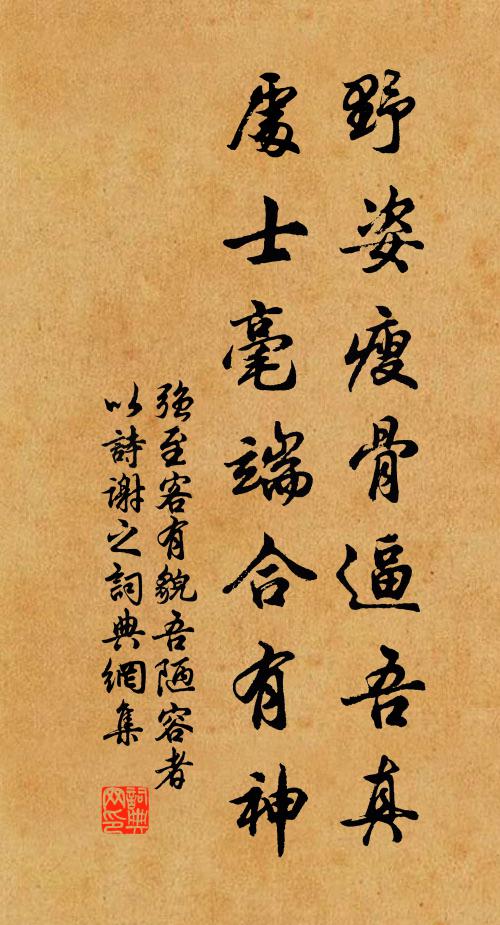 野姿瘦骨逼吾真
處士毫端合有神
強至客有貌吾陋容者
以詩謝之詞典網集
詞典網印